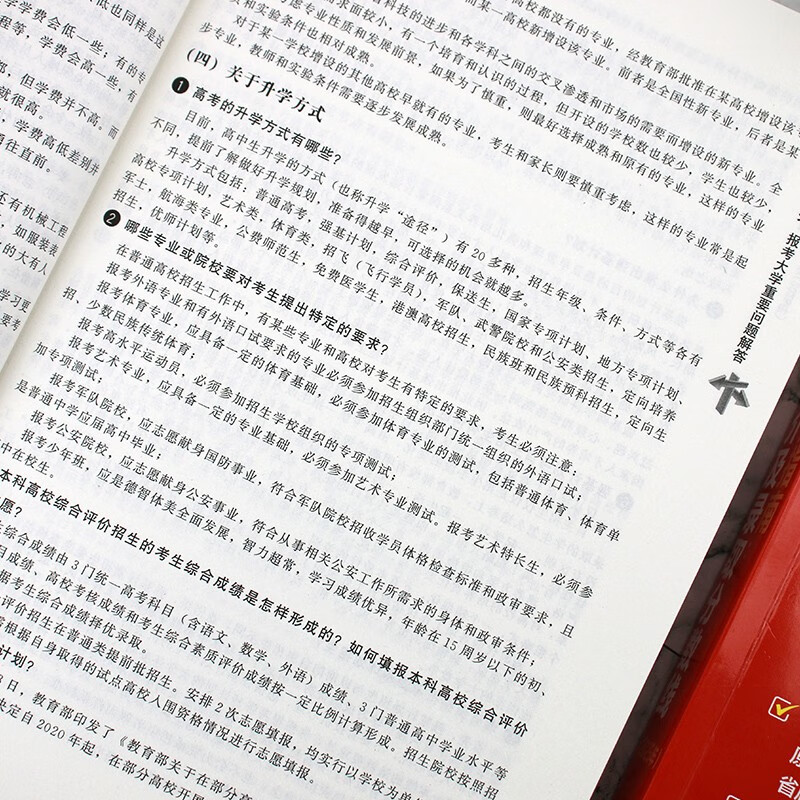 低也同样是这
学费会低一些；有的专
程等，学费会高一些，有
都，但学费并不高。而
就很高。
学费高低差别并
往直前。
还有机械工程
如服装表
的大有人
学习更
考
校都没有的专业，经教育部批准在某高校增设该专
而某一高校新增设该专业。前者是全国性新专业，后者是某
科技的进步和各学科之间的交叉渗透和市场的需要而增设的新专业。全
求面较小，有一个培育和认识的过程，但开设的学校数也较少，学生也较少，
考虑专业性质和发展前景，如果为了慎重，则最好选择成熟和原有的专业，这样的专业
和实验条件也相对成熟。
对于某一学校增设的其他高校早就有的专业，考生和家长则要慎重考虑，这样的专业常是起
步专业，教师和实验条件需要逐步发展成熟。
（四）关于升学方式
❶ 高考的升学方式有哪些？
目前，高中生升学的方式（也称升学“途径”）有 20 多种，招生年级、条件、方式等各有
不同，提前了解做好升学规划，准备得越早，可选择的机会就越多。
升学方式包括：普通高考，强基计划，综合评价，保送生，国家专项计划，地方专项计划、
高校专项计划，艺术类，体育类，招飞（飞行学员），军队、武警院校和公安类招生，定向培养
军士，航海类专业，公费师范生，免费医学生，港澳高校招生，民族班和民族预科招生，定向生
招生，优师计划等。
❷ 哪些专业或院校要对考生提出特定的要求？
在普通高校招生工作中，有某些专业和高校对考生有特定的要求，考生必须注意：
报考外语专业和有外语口试要求的专业必须参加招生组织部门统一组织的外语口试；
报考体育专业，应具备一定的体育基础，必须参加体育专业的测试，包括普通体育、体育单
招、少数民族传统体育；
报考高水平运动员，必须参加招生学校组织的专项测试；
报考艺术专业，应具备一定的专业基础，必须参加艺术专业测试。报考艺术特长生，必须参
加专项测试；
报考军队院校，应志愿献身国防事业，符合军队院校招收学员体格检查标准和政审要求，且
是普通中学应届高中毕业；
报考公安院校，应志愿献身公安事业，符合从事相关公安工作所需求的身体和政审条件；
报考少年班，应是德智体美全面发展，智力超常，学习成绩优异，年龄在 15 周岁以下的初、
中在校生。
本科高校综合评价招生的考生综合成绩是怎样形成的？如何填报本科高校综合评价
愿？
生综合成绩由 3 门统一高考科目（含语文、数学、外语）成绩、3 门普通高中学业水平等
目成绩、高校考核成绩和考生综合素质评价成绩按一定比例计算形成。招生院校按照招
据考生综合成绩择优录取。
评价招生在普通类提前批招生。安排 2 次志愿填报，均实行以学校为单
需根据自身取得的试点高校入围资格情况进行志愿填报。
计划？
日，教育部印发了《教育部关于在部分高
决定自 2020 年起，在部分高校开
报考大学重要问题解答